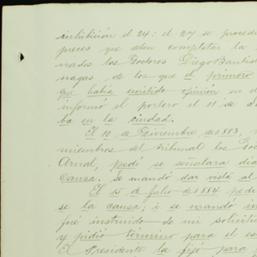 inhibición el 24: el 27 se procedi
jueces que deben completar la
nados los Doctores Diego Bautist
nagas, de los que el primero
que había emitido opinión en
informó el portero el 11 de di
ba en la ciudad.
El 10 de Noviembre de 1883,
miembros del tribunal los Doc
Arnal, pedí se señalara día
causa. Se mandó dar vista al
El 15 de Julio de 1884 pedí
se la causa, i se mandó in
fué instruido de mi solicitu
y pidió término para el es
El Presidente la fijó para